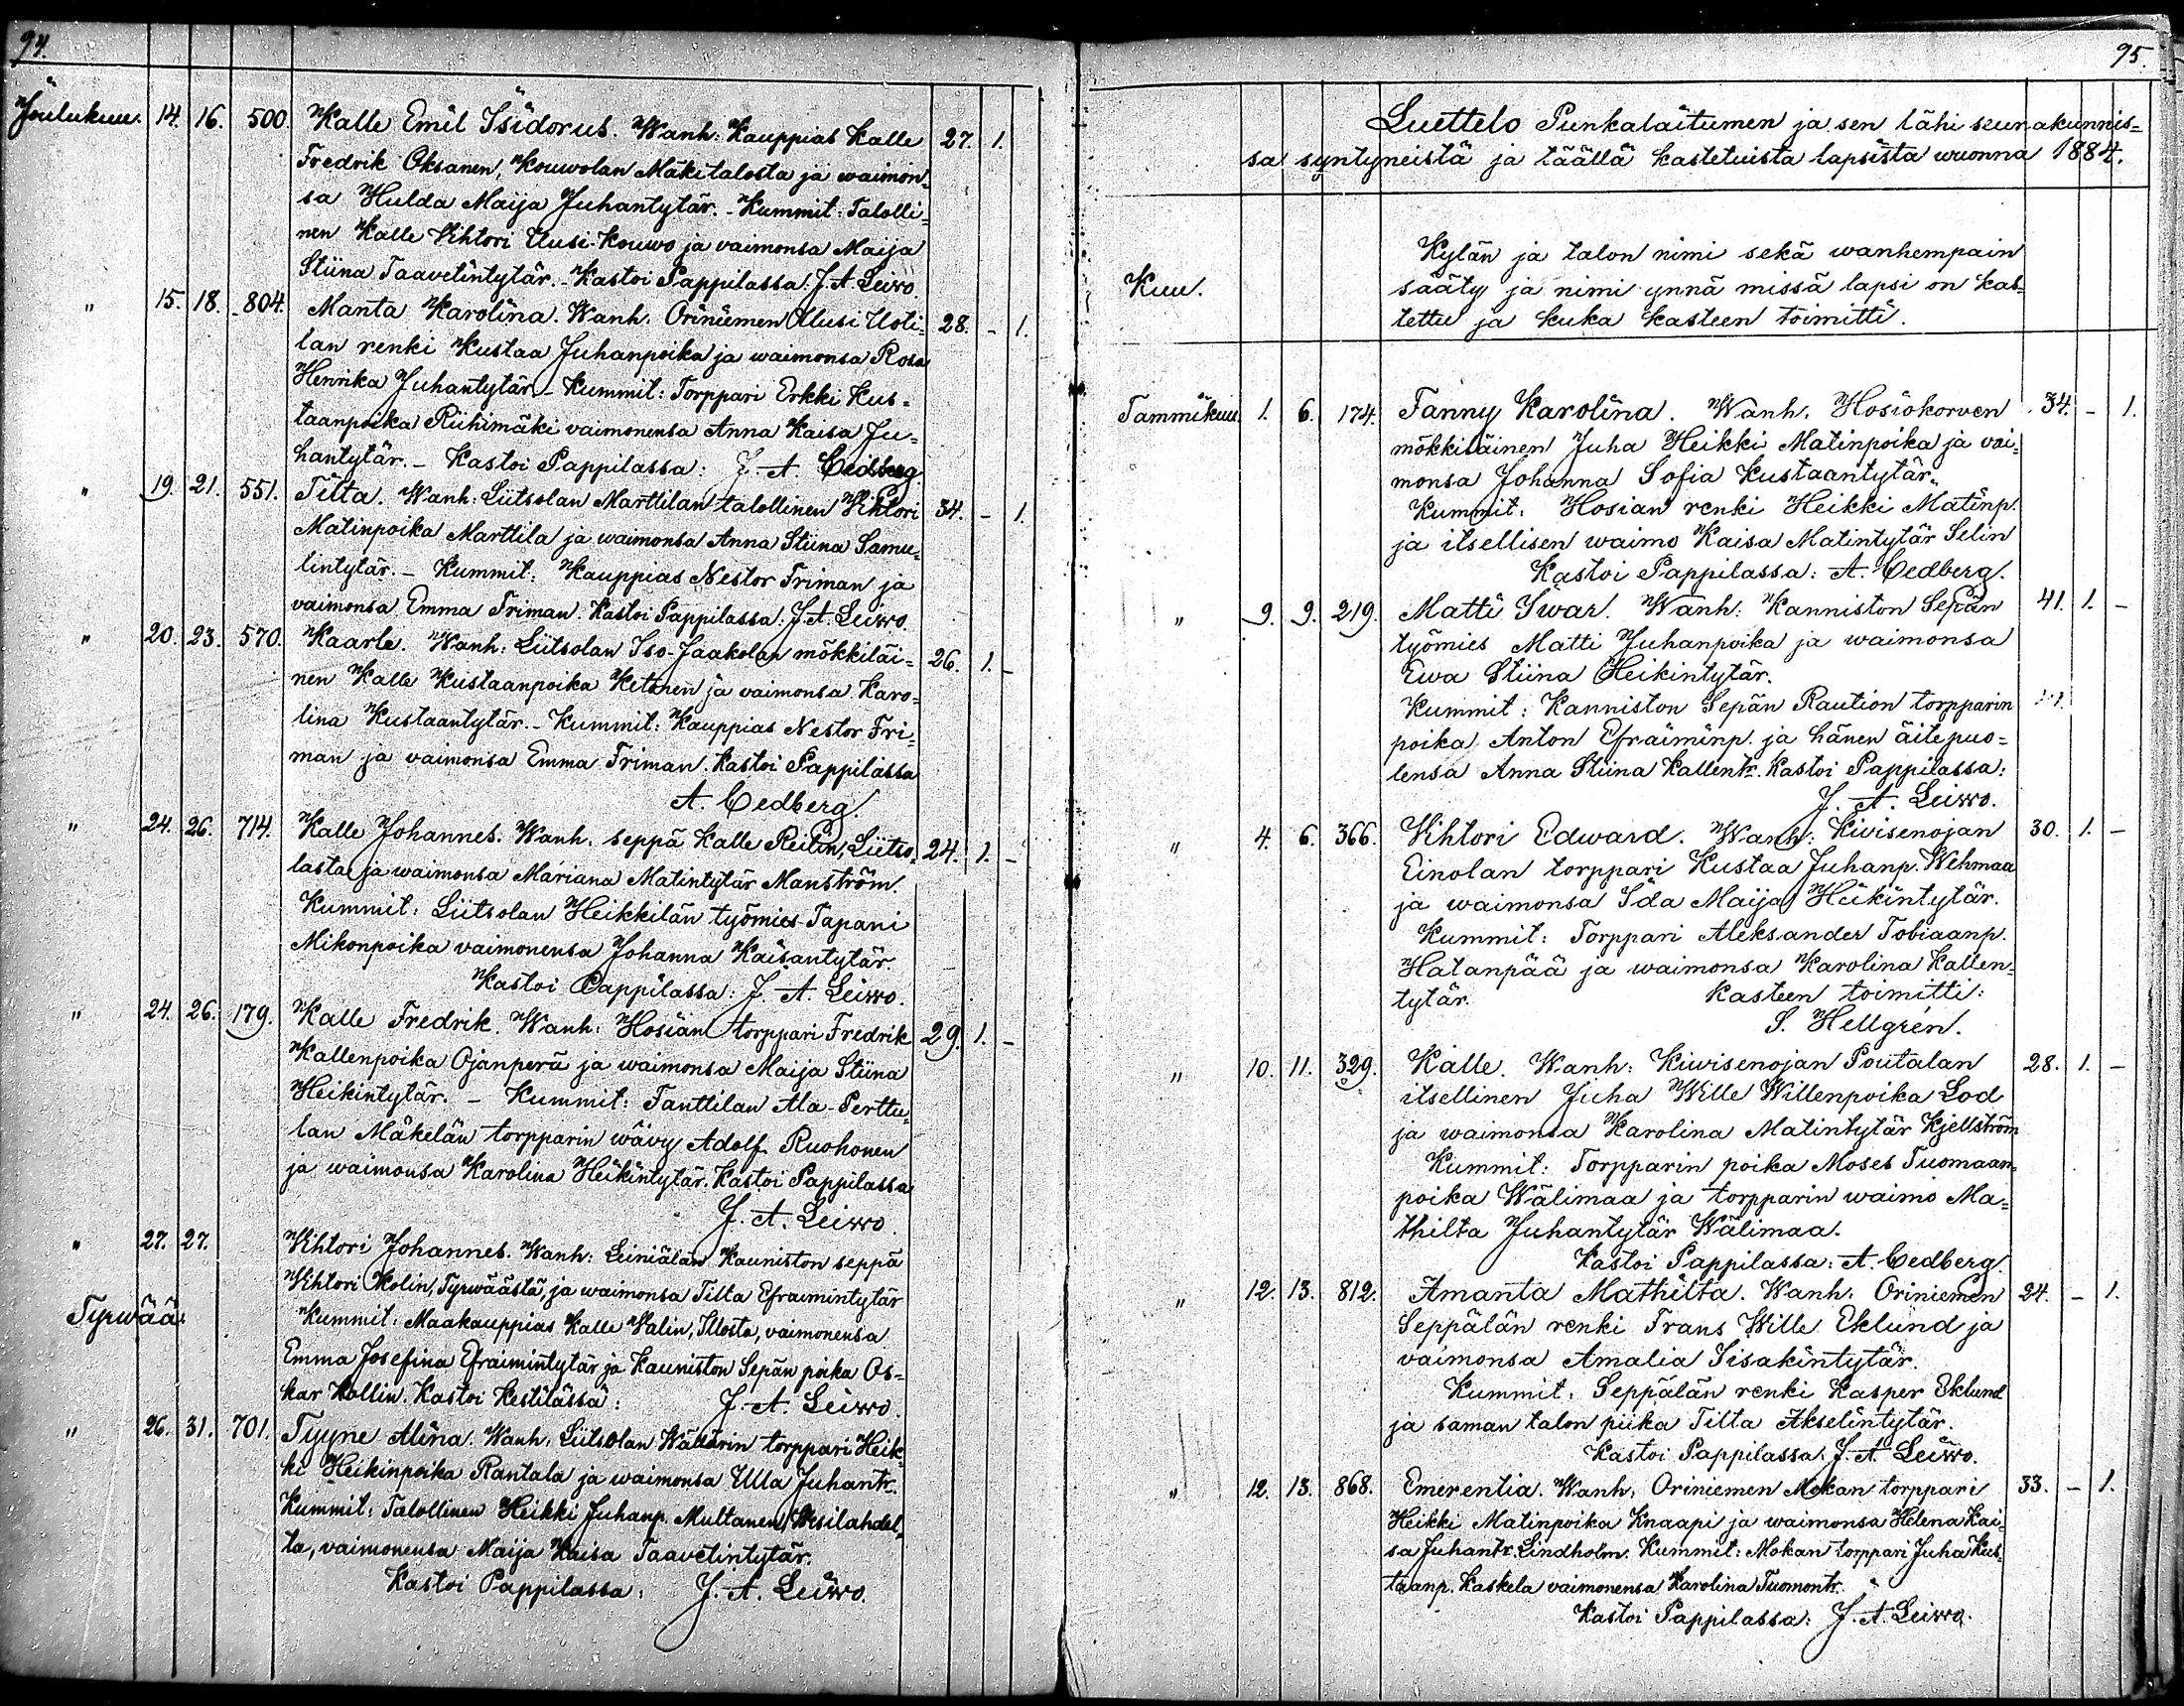 94.
Joulukuu. 14. 16. 500. Kalle Emil Isidorus. Wanh: Kauppias Kalle 27. 1.
Fredrik Oksanen, Kouwolan Mäkitalosta ja waimon=
sa Hulda Maija Juhantytär. - Kummit: Talolli=
nen Kalle Vihtori Uusi-Kouwo ja vaimonsa Maija
Stiina Taavetintytär. - Kastoi Pappilassa: J. A. Leiwo.
" 15. 18. 804. Manta Karolina. Wanh. Oriniemen Uusi Uoti= 28. - 1.
lan renki Kustaa Juhanpoika ja waimonsa Rosa
Henrika Juhantytär. - Kummit: Torppari Erkki Kus=
taanpoika Riihimäki vaimonensa Anna Kaisa Ju=
hantytär. - Kastoi Pappilassa: J. A. Cedberg
" 19. 21. 551. Tilta. Wanh: Liitsolan Marttilan talollinen Vihtori 34. - 1.
Matinpoika Marttila ja waimonsa Anna Stiina Samu=
lintytär. - Kummit: Kauppias Nestor Friman ja
vaimonsa Emma Friman. Kastoi Pappilassa: J. A. Leiwo.
" 20. 23. 570. Kaarle. Wanh: Liitsolan Iso-Jaakolan mökkiläi= 26. 1. -
nen Kalle Kustaanpoika Ketonen ja vaimonsa Karo=
lina Kustaantytär. - Kummit: Kauppias Nestor Fri=
man ja vaimonsa Emma Friman. Kastoi Pappilassa
A. Cedberg.
" 24. 26. 714. Kalle Johannes. Wanh. seppä Kalle Reilin, Liitso= 24. 1. -
lasta ja waimonsa Mariana Matintytär Manström.
Kummit: Liitsolan Heikkilän työmies Tapani
Mikonpoika vaimonensa Johanna Kaisantytär.
Kastoi Pappilassa: J. A. Leiwo.
" 24. 26. 179. Kalle Fredrik. Wanh: Hosian torppari Fredrik 29. 1. -
Kallenpoika Ojanperä ja waimonsa Maija Stiina
Heikintytär. - Kummit: Tanttilan Ala-Perttu=
lan Mäkelän torpparin wävy Adolf Ruohonen
ja waimonsa Karolina Heikintytär. Kastoi Pappilassa
J. A. Leiwo.
" 27. 27. Vihtori Johannes. Wanh: Leiniälän Kauniston seppä
Vihtori Kolin, Tyrwäästä, ja waimonsa Tilta Efraimintytär
Tyrwää: Kummit: Maakauppias Kalle Valin, Illosta, vaimonensa
Emma Josefina Efraimintytär ja Kauniston Sepän poika Os=
kar Kollin. Kastoi Kestilässä: J. A. Leiwo.
" 26. 31. 701. Tyyne Alina. Wanh: Liitsolan Wällärin torppari Heik=
ki Heikinpoika Rantala ja waimonsa Ulla Juhantr.
Kummit: Talollinen Heikki Juhanp. Multanen, Wesilahdel=
ta, vaimonensa Maija Kaisa Taavetintytär.
Kastoi Pappilassa: J. A. Leiwo.
95.
Luettelo Punkalaitumen ja sen lähi seurakunnis=
sa syntyneistä ja täällä kastetuista lapsista wuonna 1884.
Kylän ja talon nimi sekä wanhempain
Kuu. sääty ja nimi ynnä missä lapsi on kas=
tettu ja kuka kasteen toimitti.
Tammikuu. 1. 6. 174. Fanny Karolina. Wanh. Hosiokorven 34. - 1.
mökkiläinen Juha Heikki Matinpoika ja vai=
monsa Johanna Sofia Kustaantytär.
Kummit: Hosian renki Heikki Matinp.
ja itsellisen waimo Kaisa Matintytär Selin
Kastoi Pappilassa: A. Cedberg.
" 9. 9. 219. Matti Iwar. Wanh: Kanniston Sepän 41. 1. -
työmies Matti Juhanpoika ja waimonsa
Ewa Stiina Heikintytär.
Kummit: Kanniston Sepän Raution torpparin
poika Anton Efraiminp. ja hänen äitipuo=
lensa Anna Stiina Kallentr. Kastoi Pappilassa:
J. A. Leiwo.
" 4. 6. 366. Vihtori Edward. Wanh: Kivisenojan 30. 1. -
Einolan torppari Kustaa Juhanp. Wehmaa
ja waimonsa Ida Maija Heikintytär.
Kummit: Torppari Aleksander Tobiaanp.
Hatanpää ja waimonsa Karolina Kallen=
tytär. Kasteen toimitti:
S. Hellgrén.
" 10. 11. 329. Kalle. Wanh: Kiwisenojan Poutalan 28. 1. -
itsellinen Juha Wille Willenpoika Lod
ja waimonsa Karolina Matintytär Kjellström
Kummit: Torpparin poika Moses Tuomaan=
poika Wälimaa ja torpparin waimo Ma=
thilta Juhantytär Wälimaa.
Kastoi Pappilassa: A. Cedberg.
" 12. 13. 812. Amanta Mathilta. Wanh: Oriniemen 24. - 1.
Seppälän renki Frans Wille Eklund ja
vaimonsa Amalia Iisakintytär.
Kummit: Seppälän renki Kasper Eklund
ja saman talon piika Tilta Akselintytär.
Kastoi Pappilassa: J. A. Leiwo.
" 12. 13. 868. Emerentia. Wanh: Oriniemen Mokan torppari 33. - 1.
Heikki Matinpoika Knaapi ja waimonsa Helena Kai=
sa Juhantr. Lindholm. Kummit: Mokan torppari Juha Kus=
taanp. Kaskela vaimonensa Karolina Tuomontr.
Kastoi Pappilassa: J. A. Leiwo.